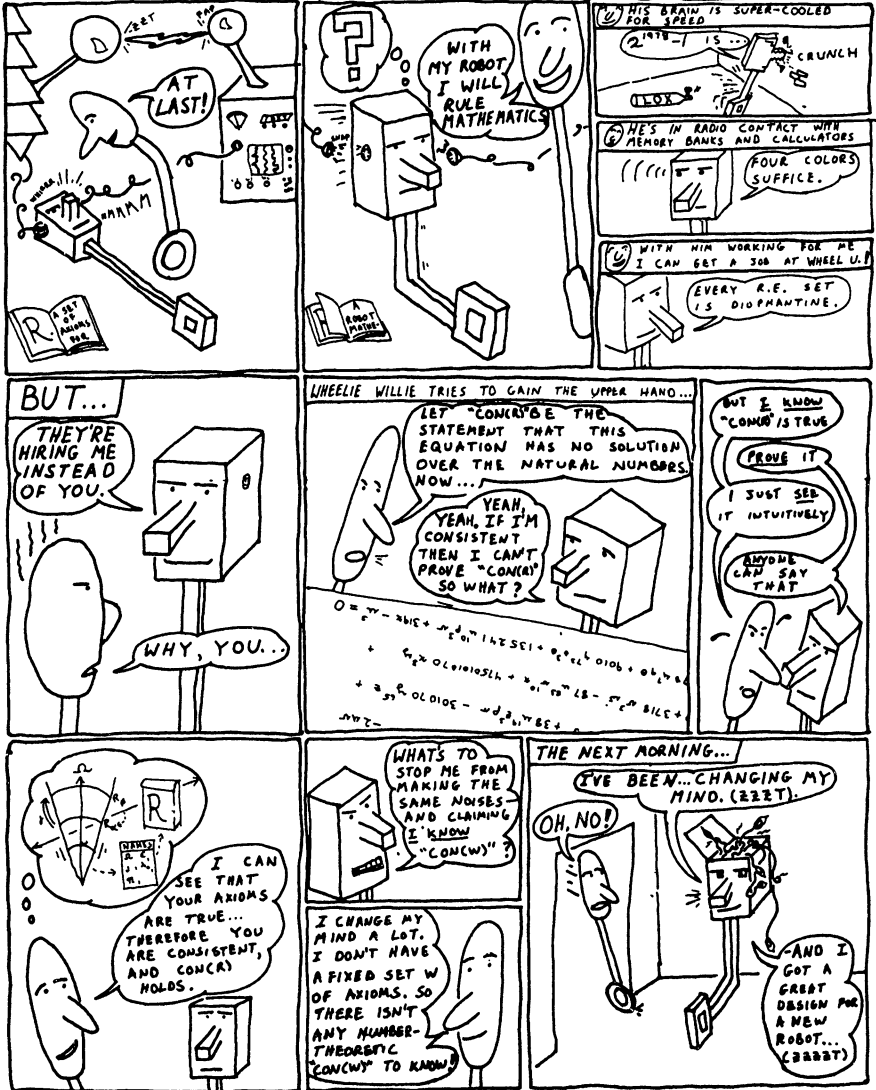 ZZT
PAP
AT
LAST!
WHIRRR
MMMM
R.
A SET
OF
AXIOMS
FOR
?
WITH
MY ROBOT,
I WILL
RULE
MATHEMATICS
SNAP
A
ROBOT
MATHE-
HIS BRAIN IS SUPER-COOLED
FOR SPEED
2¹⁹⁷⁸-1 IS...
CRUNCH
LOX
HE'S IN RADIO CONTACT WITH
MEMORY BANKS AND CALCULATORS
FOUR COLORS
SUFFICE.
WITH HIM WORKING FOR ME
I CAN GET A JOB AT WHEEL U.!
EVERY R.E. SET
IS DIOPHANTINE.
BUT...
THEY'RE
HIRING ME
INSTEAD
OF YOU.
WHY, YOU...
WHEELIE WILLIE TRIES TO GAIN THE UPPER HAND...
LET "CON(R)" BE THE
STATEMENT THAT THIS
EQUATION HAS NO SOLUTION
OVER THE NATURAL NUMBERS.
NOW...
YEAH,
YEAH. IF I'M
CONSISTENT
THEN I CAN'T
PROVE "CON(R)"
SO WHAT?
BUT I KNOW
"CON(R)" IS TRUE
PROVE IT
I JUST SEE
IT INTUITIVELY
ANYONE
CAN SAY
THAT
Ω
R
NAMES
I CAN
SEE THAT
YOUR AXIOMS
ARE TRUE...
THEREFORE YOU
ARE CONSISTENT,
AND CON(R)
HOLDS.
WHAT'S TO
STOP ME FROM
MAKING THE
SAME NOISES—
AND CLAIMING
I KNOW
"CON(W)"?
I CHANGE MY
MIND A LOT.
I DON'T HAVE
A FIXED SET W
OF AXIOMS. SO
THERE ISN'T
ANY NUMBER-
THEORETIC
"CON(W)" TO KNOW!
THE NEXT MORNING...
I'VE BEEN...CHANGING MY
MIND. (ZZZT).
OH, NO!
-AND I
GOT A
GREAT
DESIGN FOR
A NEW
ROBOT...
(ZZZZT)